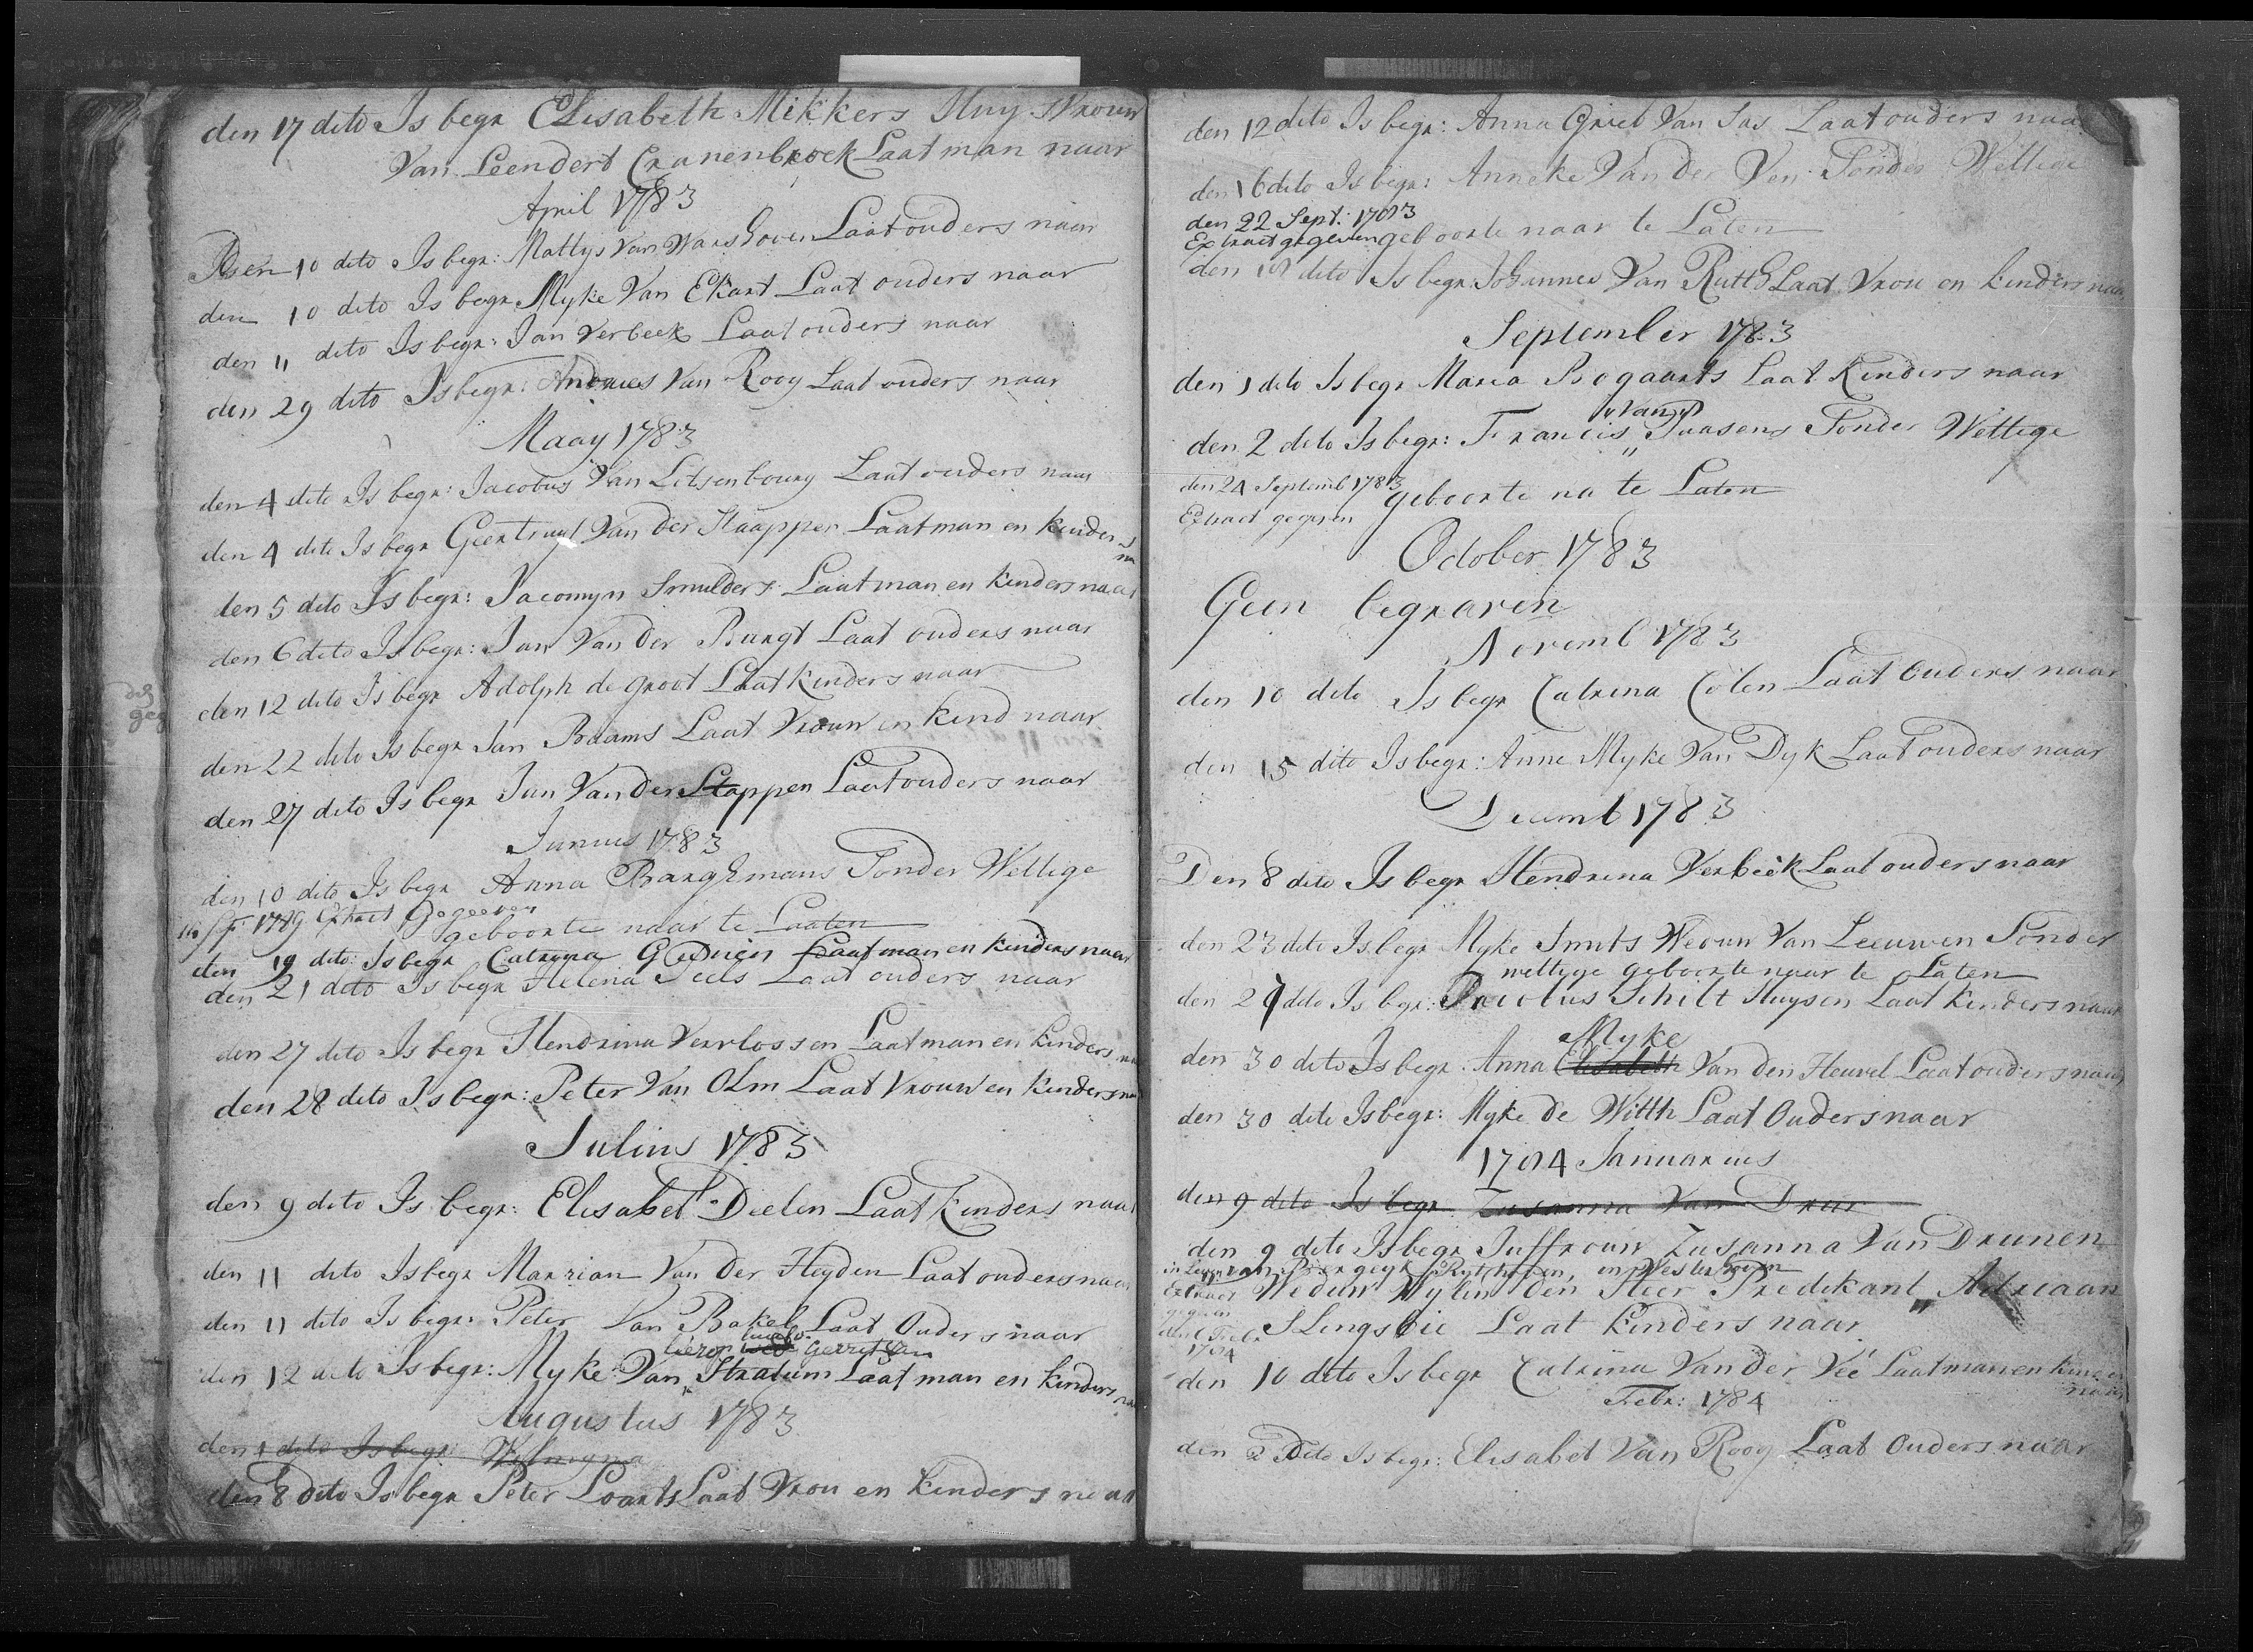 den 17 dito Is begr Elisabeth Mikkers Huy Vrouw
Van Leendert Cranenbroek Laat man naar
April 1783
Den 10 dito Is begr: Mattys Van Warshoven Laat ouders naar
den 10 dito Is begr Myke Van Ekart Laat ouders naar
den 11 dito Is begr: Jan Verbeek Laat ouders naar
den 29 dito Is begr: Andries Van Rooy Laat ouders naar
Maay 1783
den 4 dito Is begr: Jacobus Van Litsenbourg Laat ouders naar
den 4 dito Is begr Geertruy Van der Staappen Laat man en kinders na
den 5 dito Is begr: Jacomyn Smulders Laat man en kinders naar
den 6 dito Is begr: Jan Van der Burgt Laat ouders naar
den 12 dito Is begr Adolph de groot Laat kinders naar
den 22 dito Is begr Jan Baams Laat Vrouw en kind naar
den 27 dito Is begr Jan Van der Stappen Laat ouders naar
Junius 1783
den 10 dito Is begr Anna Barghmans Sonder Wettige
1789 Extract Gegeeven
geboorte naar te Laaten
den 19 dito: Is begr Catrina Laat man en kinders naar
den 21 dito Is begr Helena Teels Laat ouders naar
den 27 dito Is begr Hendrina Verrlossen Laat man en kinders na
den 28 dito Is begr: Peter Van Olm Laat Vrouw en kinders na
Julius 1783
den 9 dito Is begr: Elisabet Dielen Laat Kinders naar
den 11 dito Is begr Marrian Van der Heyden Laat ouders naar
den 11 dito Is begr: Peter Van Bakel Laat Ouders naar
Gerritsen
den 12 dito Is begr: Myke Van Stratum Laat man en kinders na
Augustus 1783
den 1 dito Is begr: Wilmyna
den 8 dito Is begr Peter Loarts Laat Vrou en kinders naar
den 12 dito Is begr: Anna Griet Van Sas Laat ouders naar
den 16 dito Is begr: Anneke Van der Ven Sonder Wettige
den 22 Sept: 1783
Extract gegeven geboorte naar te Laten
den 18 dito Is begr Johannes Van Rutth Laat Vrou en kinders naar
September 1783
den 1 dito Is begr Maria Bogaarts Laat Kinders naar
Van
den 2 dito Is begr: Francis " Paasens Sonder Wettige
den 24 Septemb 1783 geboorte na te Laten
Extract gegeven
October 1783
Geen begraven
Novemb 1783
den 10 dito Is begr Catrina Colen Laat Ouders naar
den 15 dito Is begr: Anne Myke Van Dyk Laat ouders naar
Decemb 1783
Den 8 dito Is begr Hendrina Verbeek Laat ouders naar
den 23 dito Is begr Myke Smits Weduw Van Leeuwen Sonder
wettige geboorte naar te Laten
den 27 dito Is begr: Jacobus Schilt Huysen Laat kinders naar
Myke
den 30 dito Is begr: Anna Elisabeth Van den Heuvel Laat ouders naar
den 30 dito Is begr: Myke de Witth Laat Ouders naar
1784 Januarius
den 9 dito Is begr. Zusanna Van Drun
den 9 dito Is begr Juffrouw Zusanna Van Drunen
Extract Weduw Wylen den Heer Predikant Adriaan
gegeven
Slingsbie Laat kinders naar
1784
den 10 dito Is begr Catrina Van der Veé Laat man en kinders naar
Febr: 1784
den 2 Dito Is begr: Elisabet Van Rooy Laat Ouders naar